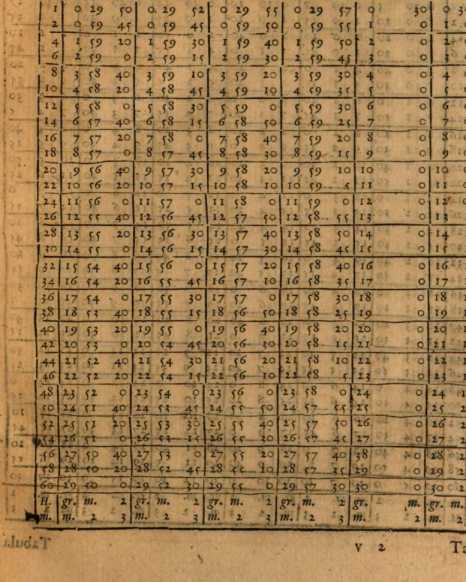 1 0 29 50 0 29 52 0 29 55 0 29 57 0 30 0
2 0 59 45 0 59 45 0 59 50 0 59 55 1 0 1
4 1 59 20 1 59 30 1 59 40 1 59 50 2 0 2
6 2 59 0 2 59 15 2 59 30 2 59 45 3 0 3
8 3 58 40 3 59 10 3 59 20 3 59 30 4 0 4
10 4 58 20 4 58 45 4 59 10 4 59 35 5 0 5
12 5 58 0 5 58 30 5 59 0 5 59 30 6 0 6
14 6 57 40 6 58 15 6 58 50 6 59 25 7 0 7
16 7 57 20 7 58 0 7 58 40 7 59 20 8 0 8
18 8 57 0 8 57 45 8 58 30 8 59 15 9 0 9
20 9 56 40 9 57 30 9 58 20 9 59 10 10 0 10
22 10 56 20 10 57 15 10 58 10 10 59 5 11 0 11
24 11 56 0 11 57 0 11 58 0 11 59 0 12 0 12
26 12 55 40 12 56 45 12 57 50 12 58 55 13 0 13
28 13 55 20 13 56 30 13 57 40 13 58 50 14 0 14
30 14 55 0 14 56 15 14 57 30 14 58 45 15 0 15
32 15 54 40 15 56 0 15 57 20 15 58 40 16 0 16
34 16 54 20 16 55 45 16 57 10 16 58 35 17 0 17
36 17 54 0 17 55 30 17 57 0 17 58 30 18 0 18
38 18 53 40 18 55 15 18 56 50 18 58 25 19 0 19
40 19 53 20 19 55 0 19 56 40 19 58 20 20 0 20
42 20 53 0 20 54 45 20 56 30 20 58 15 21 0 21
44 21 52 40 21 54 30 21 56 20 21 58 10 22 0 22
46 22 52 20 22 54 15 22 56 10 22 58 5 23 0 23
48 23 52 0 23 54 0 23 56 0 23 58 0 24 0 24
50 24 51 40 24 53 45 24 55 50 24 57 55 25 0 25
52 25 51 20 25 53 30 25 55 40 25 57 50 26 0 26
54 26 51 0 26 53 15 26 55 30 26 57 45 27 0 27
56 27 50 40 27 53 0 27 55 20 27 57 40 38 0 28
58 28 50 20 28 52 45 28 55 10 28 57 35 29 0 29
60 29 50 0 29 52 30 29 55 0 29 57 30 30 0 30
H. gr. m. 2 gr. m. 2 gr. m. 2 gr. m. 2 gr. m. gr.
m. m. 2 3 m. 2 3 m. 2 3 m. 2 3 m. 2 m.
V 2